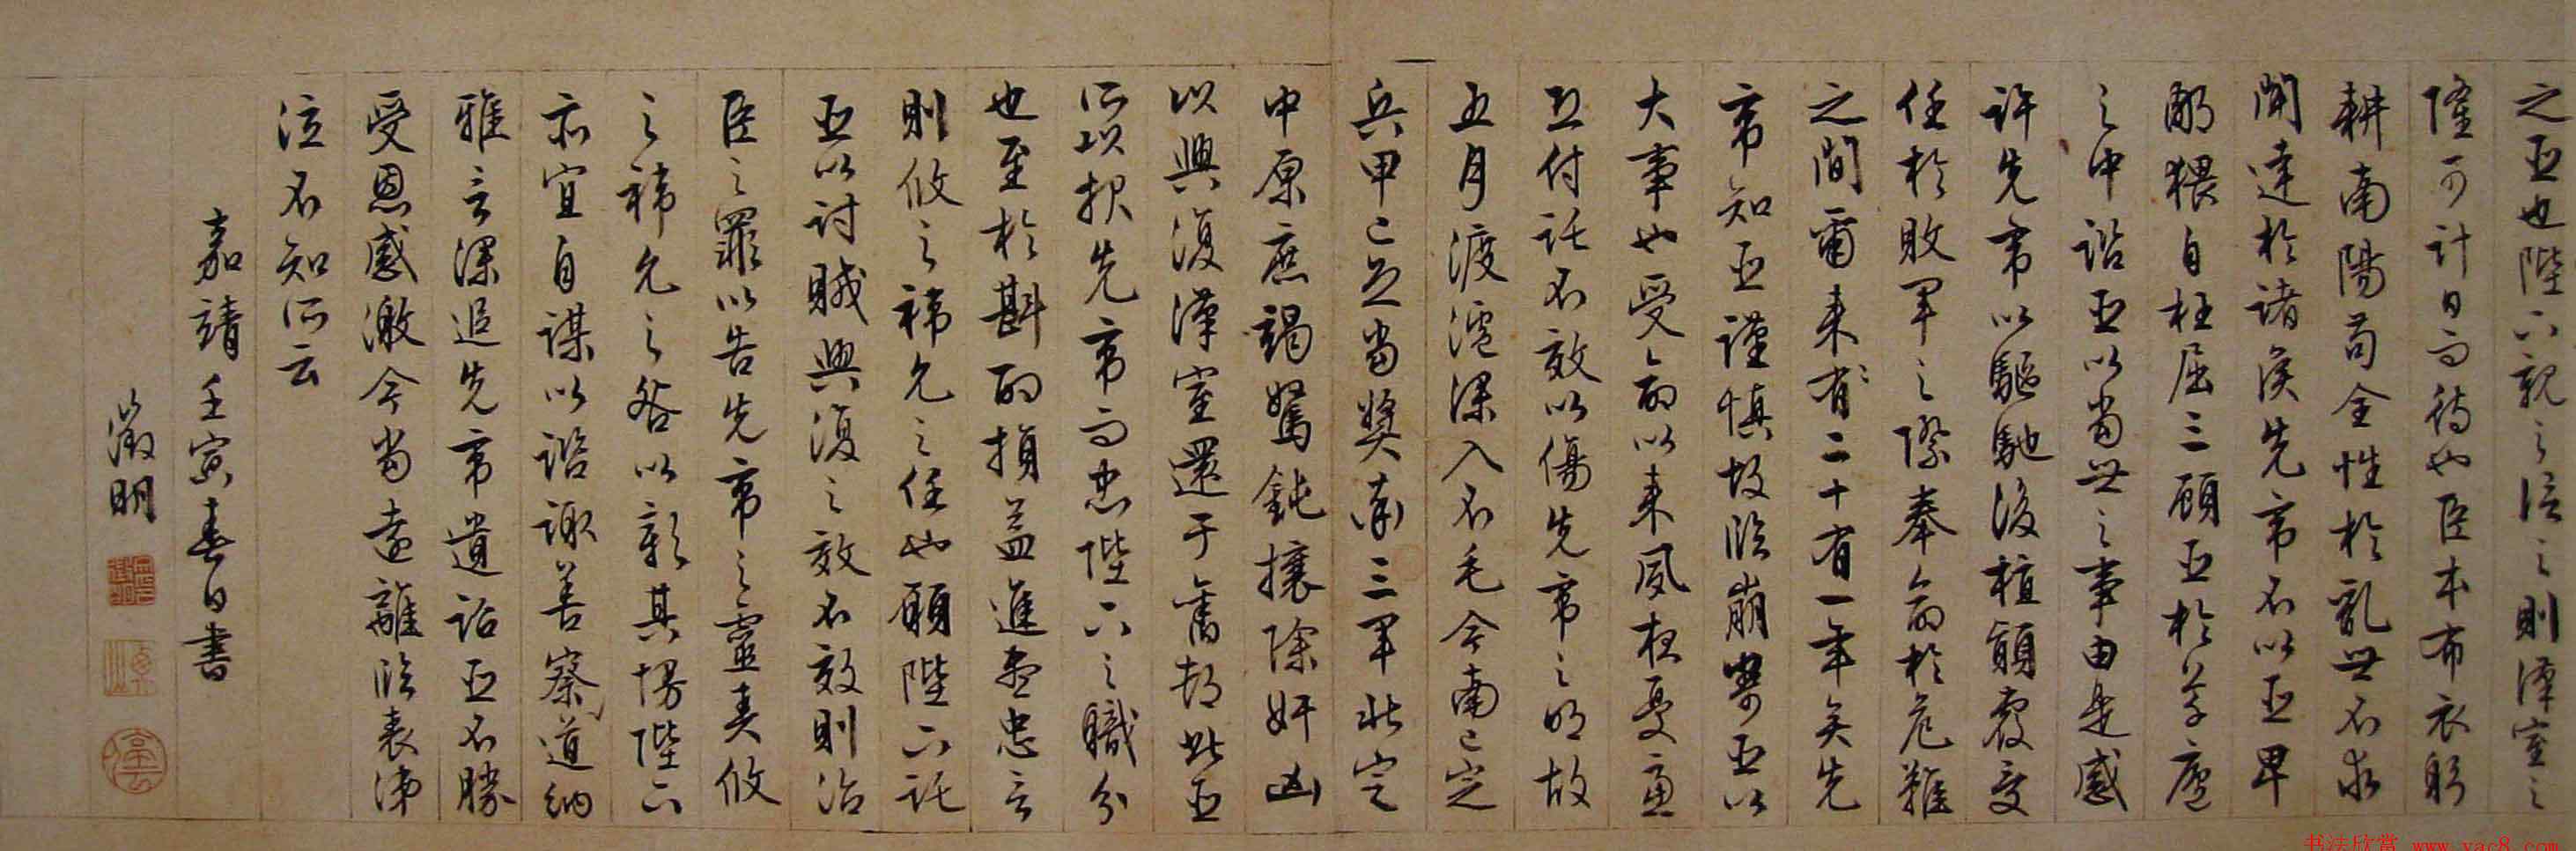 之臣也陛下親之信之則漢室之
隆可計日而待也臣本布衣躬
耕南陽苟全性於亂世不求
聞達於諸侯先帝不以臣卑
鄙猥自枉屈三顧臣於草廬
之中諮臣以當世之事由是感
許先帝以驅馳後植傾覆受
任於敗軍之際奉命於危難
之間爾來有二十有一年矣先
帝知臣謹慎故臨崩寄臣以
大事也受命以來夙夜憂慮
恐付託不效以傷先帝之明故
五月渡瀘深入不毛今南已定
兵甲已足當獎率三軍北定
中原庶竭駑鈍攘除奸凶
以興復漢室還于舊都此臣
所以報先帝而忠陛下之職分
也至於斟酌損益進盡忠言
則攸之禕允之任也願陛下託
臣以討賊興復之效不效則治
臣之罪以告先帝之靈責攸
之禕允之咎以彰其慢陛下
亦宜自謀以諮諏善察道納
雅言深追先帝遺詔臣不勝
受恩感激今當遠離臨表涕
泣不知所云
嘉靖壬寅春日書
徵明
书法欣赏 www.yac8.com